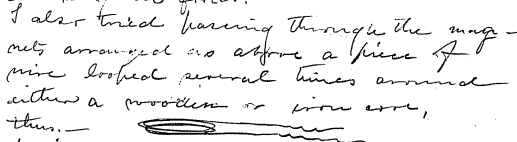 I also tried passing through the mag-
nets arranged as above a piece of
wire looped several times around
either a wooden or iron core,
thus.—